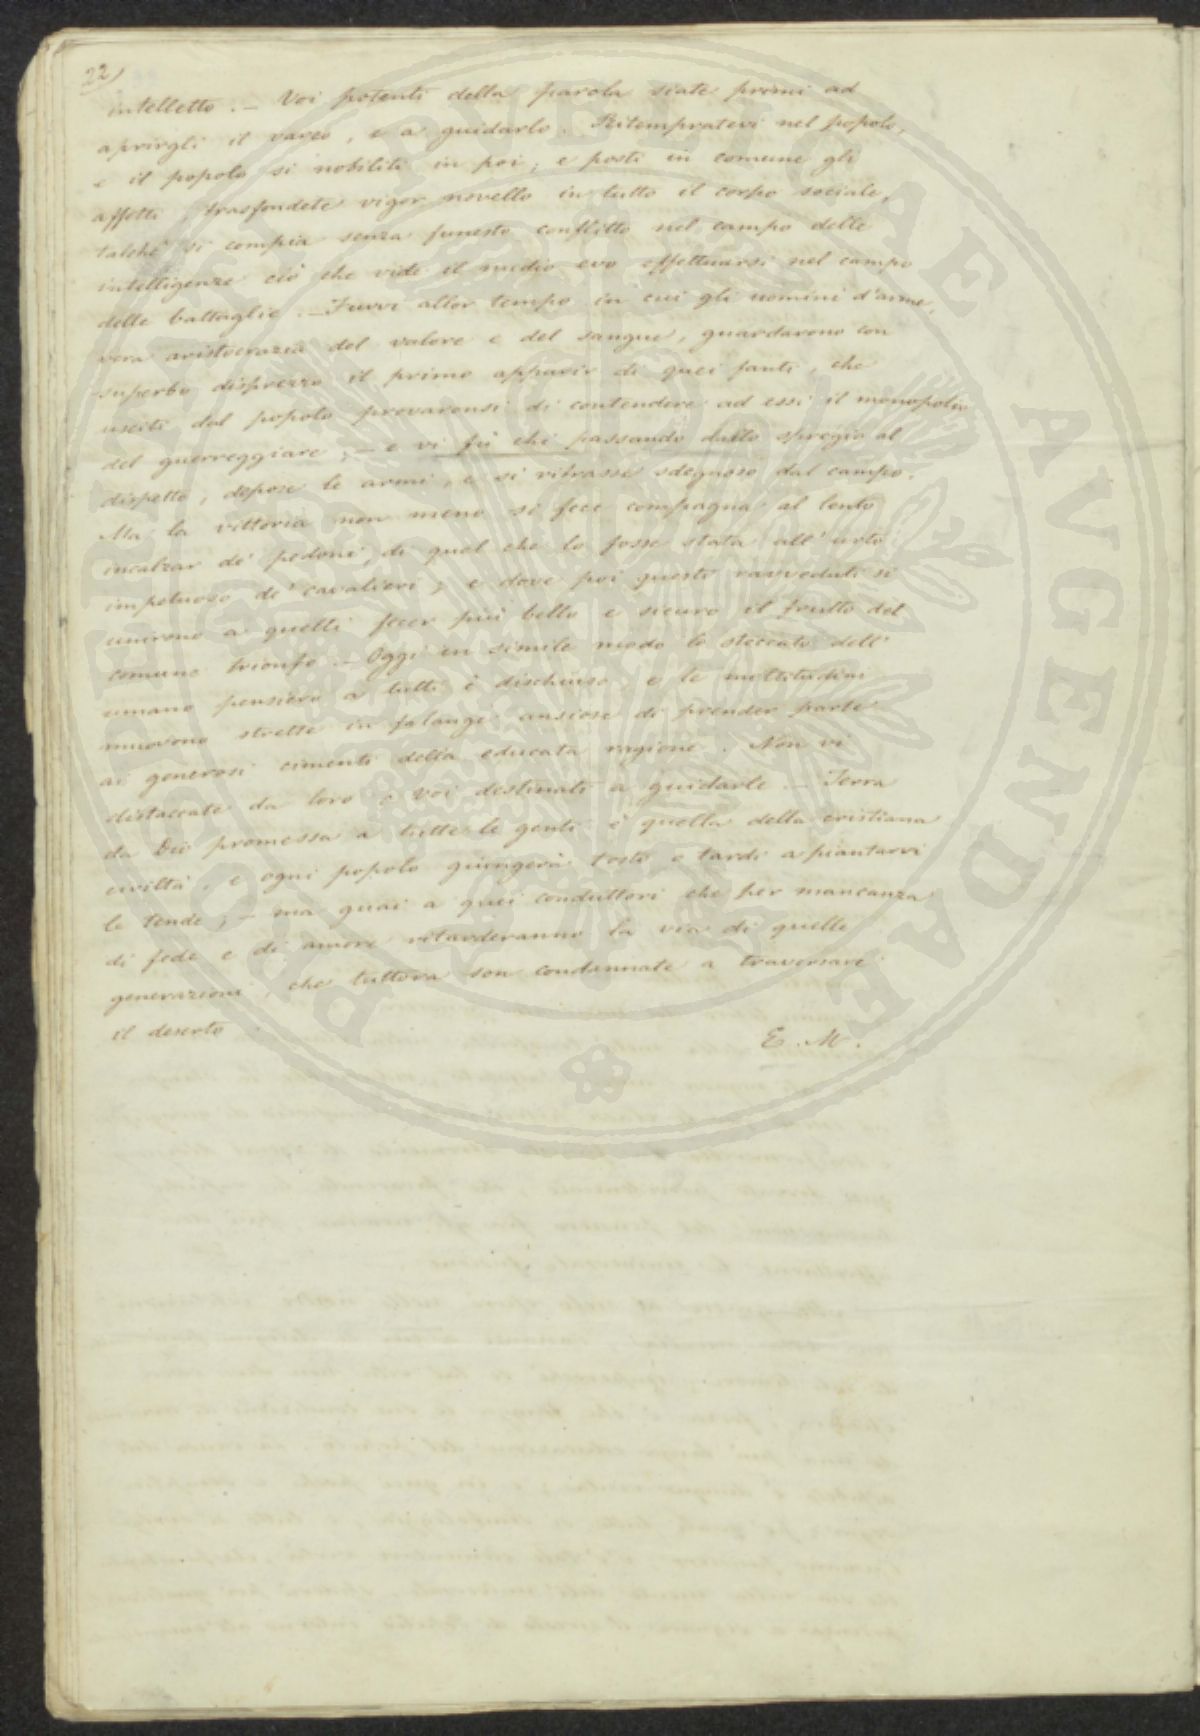 22)
intelletto. — Voi potenti della parola siate primi ad
aprirgli il varco, e a guidarlo. Ritempratevi nel popolo,
e il popolo si nobiliti in poi; e posti in comune gli
affetti, trasfondete vigor novello in tutto il corpo sociale,
talchè si compia senza funesto conflitto nel campo delle
intelligenze ciò che vide il medio evo effettuarsi nel campo
delle battaglie. — Fuvvi allor tempo in cui gli uomini d'arme,
vera aristocrazia del valore e del sangue, guardarono con
superbo disprezzo il primo apparir di quei fanti, che
usciti dal popolo provaronsi di contendere ad essi il monopolio
del guerreggiare; — e vi fù chi passando dallo spregio al
dispetto, depose le armi, e si ritrasse sdegnoso dal campo.
Ma la vittoria non meno si fece compagna al lento
incalzar de' pedoni, di quel che lo fosse stata all'urto
impetuoso de' cavalieri; e dove poi questi ravveduti si
unirono a quelli fecer più bello e sicuro il frutto del
comune trionfo. — Oggi in simile modo lo steccato dell'
umano pensiero a tutti è dischiuso, e le moltitudini
muovono strette in falange ansiose di prender parte
ai generosi cimenti della educata ragione. Non vi
distaccate da loro o voi destinati a guidarle. — Terra
da Dio promessa a tutte le genti è quella della cristiana
civiltà, e ogni popolo giungerà tosto o tardi a piantarvi
le tende; — ma guai a quei conduttori che per mancanza
di fede e di amore ritarderanno la via di quelle
generazioni, che tuttora son condannate a traversare
il deserto.
E. M.
PVBLICAE AVGENDAE